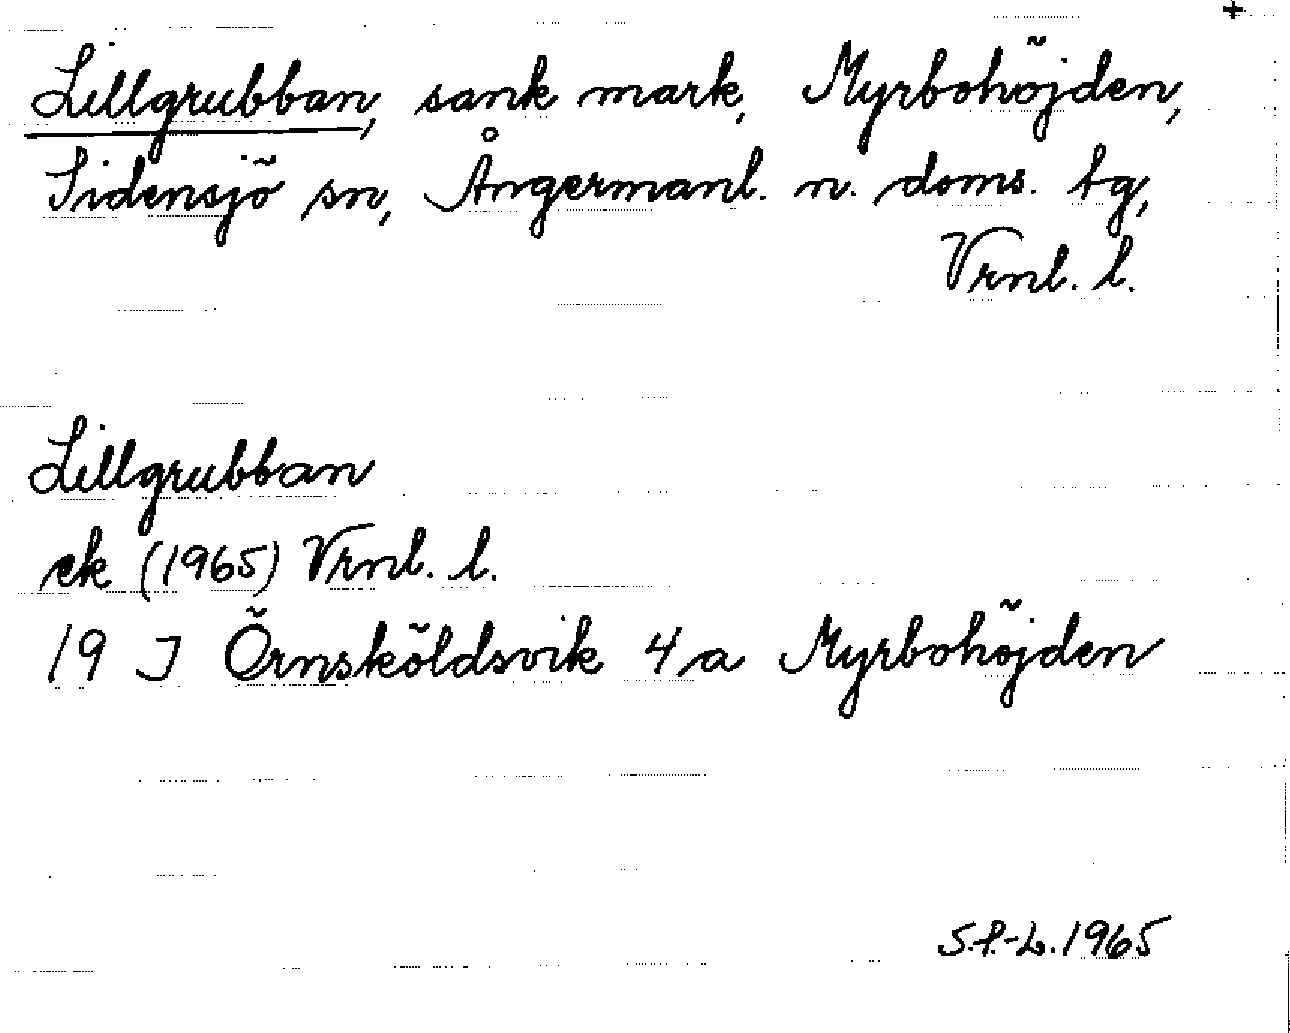 Lillgrubban, sank mark, Myrbohöjden,
Sidensjö sn, Ångermanl. n. doms. tg,
Vrnl. l.
Lillgrubban
ek (1965) Vrnl. l.
19 J Örnsköldsvik 4 a Myrbohöjden
S.P.-L. 1965